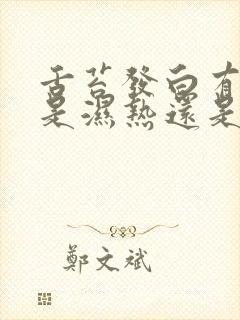 舌苔發白有
是濕熱還是
鄭文斌